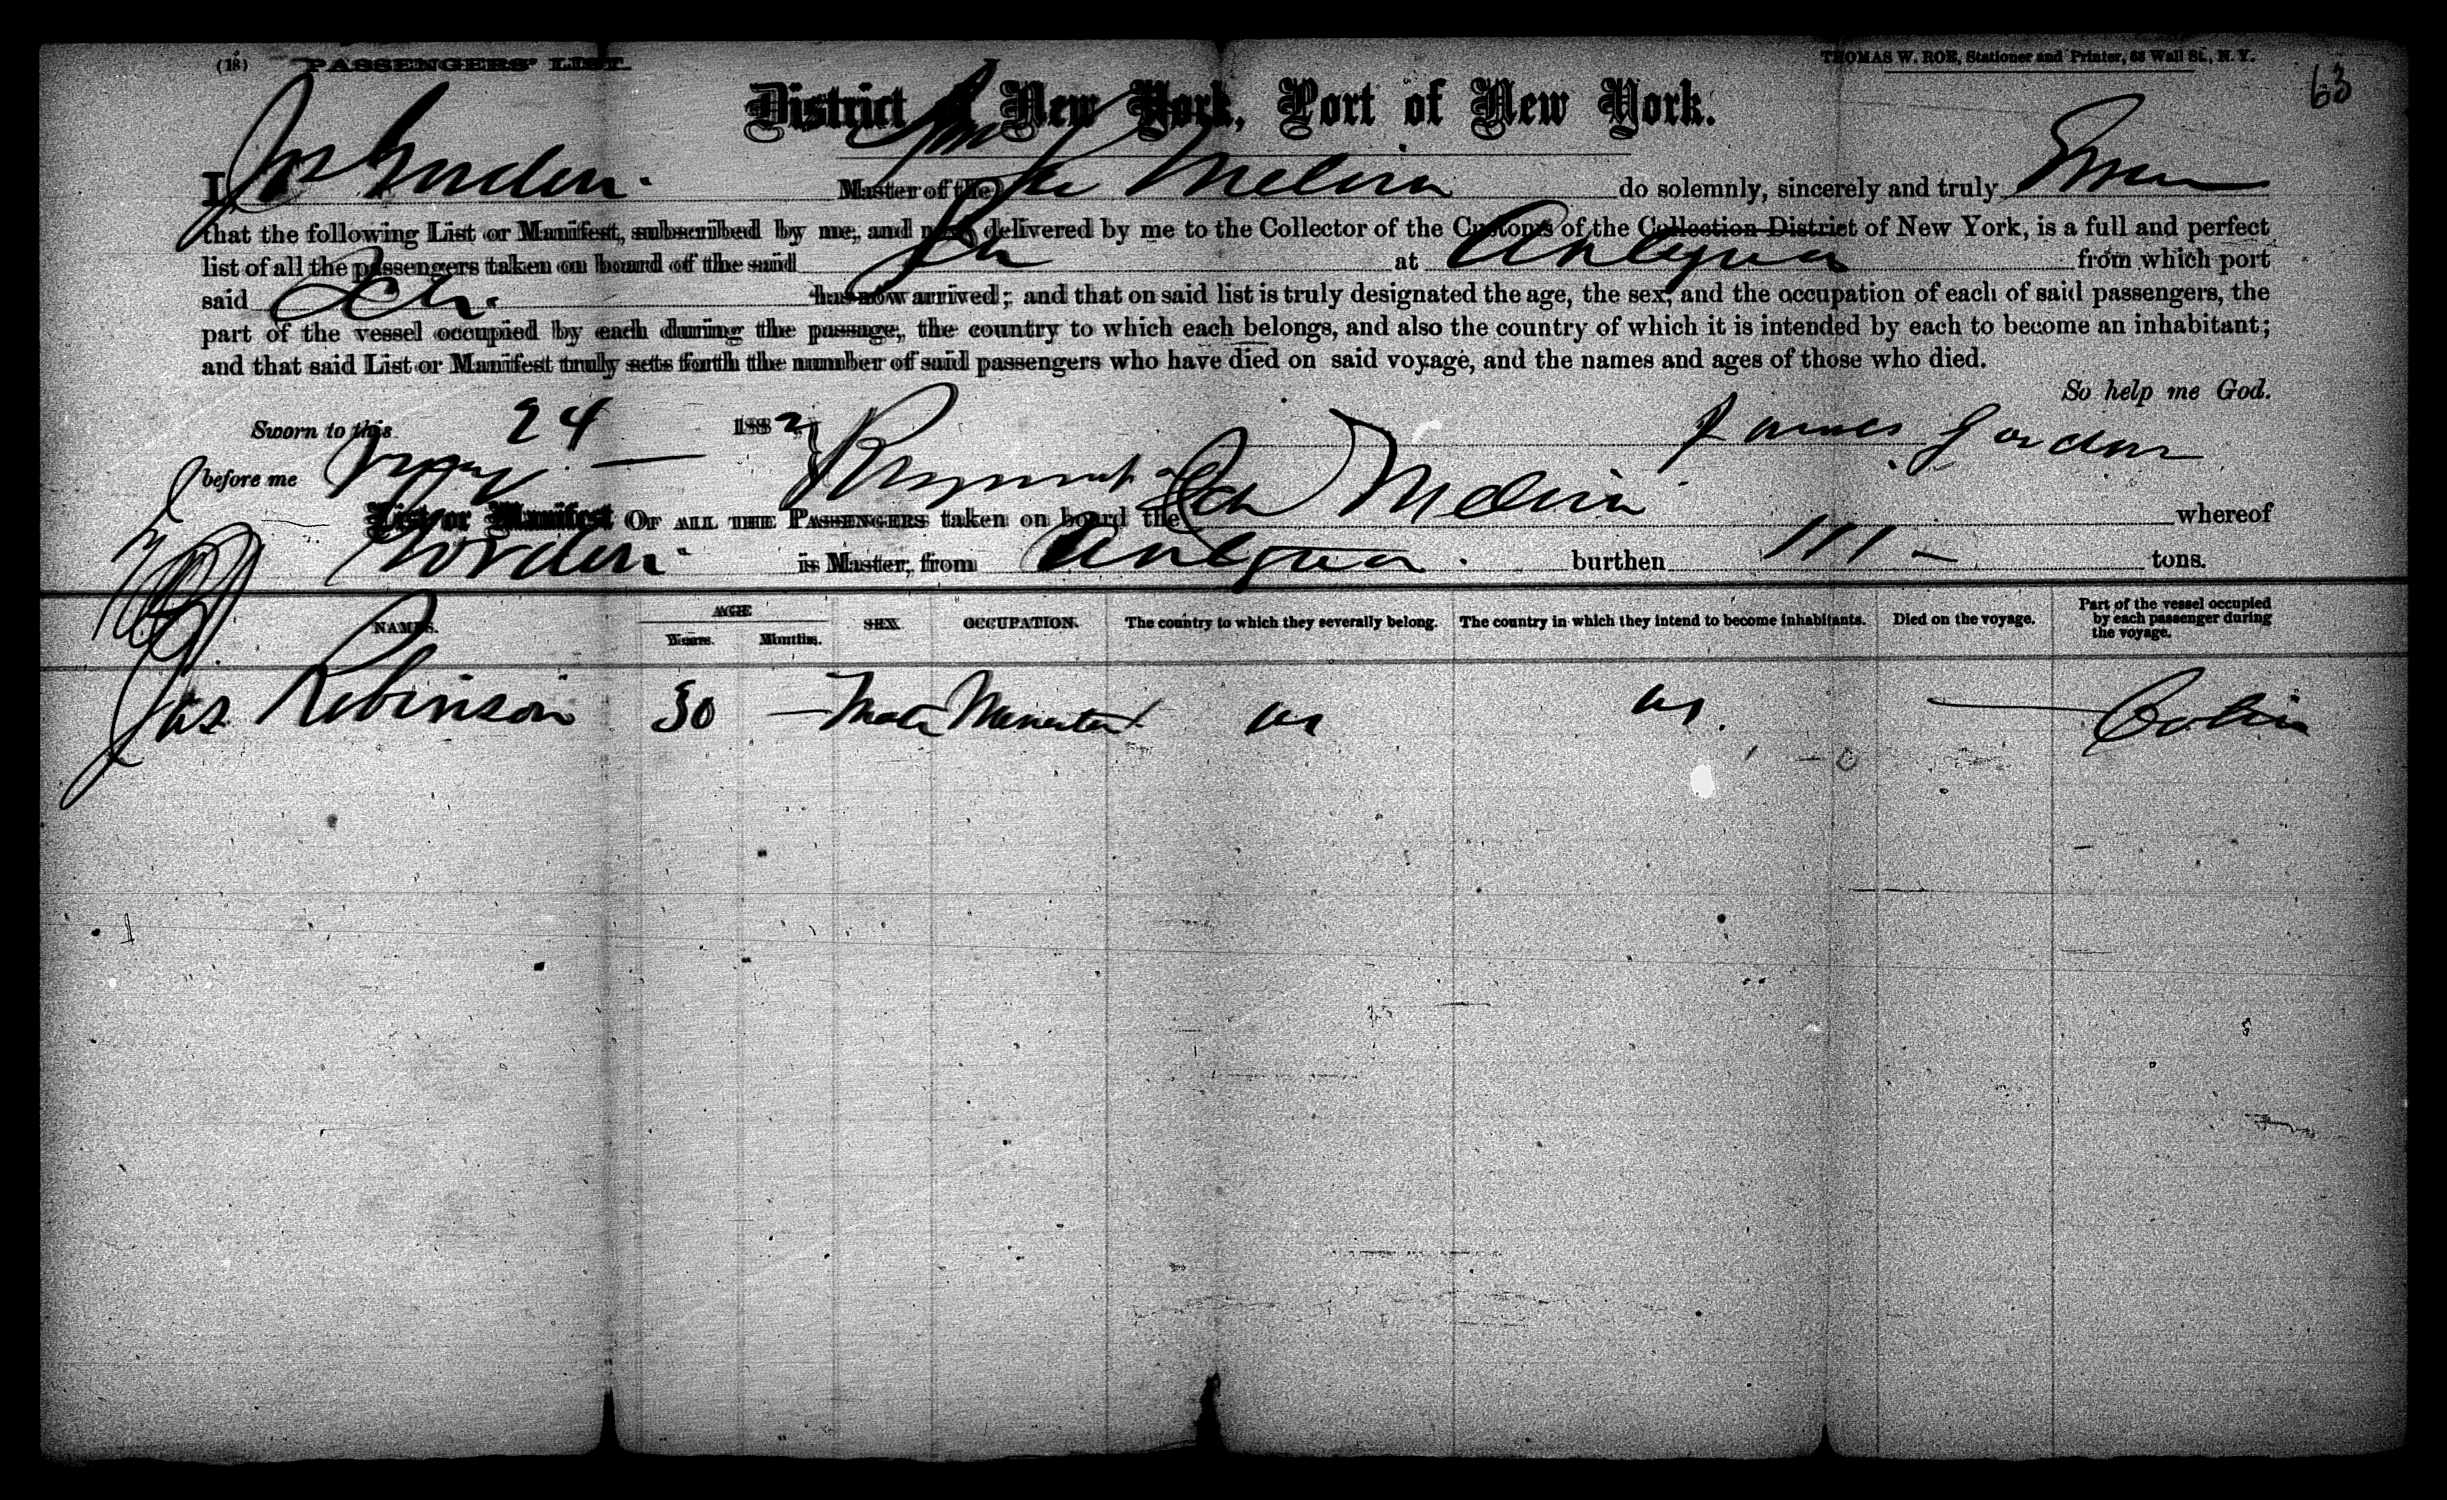 (18) PASSENGERS' LIST.
THOMAS W. ROE, Stationer and Printer, 63 Wall St., N. Y.
63
District of New York, Port of New York.
I, Jas Gorden. Master of the Melvin do solemnly, sincerely and truly Swear
that the following List or Manifest, subscribed by me, and now delivered by me to the Collector of the Customs of the Collection District of New York, is a full and perfect
list of all the passengers taken on board of the said Sch at Antigua from which port
said Sch. has now arrived; and that on said list is truly designated the age, the sex, and the occupation of each of said passengers, the
part of the vessel occupied by each during the passage, the country to which each belongs, and also the country of which it is intended by each to become an inhabitant;
and that said List or Manifest truly sets forth the number of said passengers who have died on said voyage, and the names and ages of those who died.
So help me God.
Sworn to this 24 1882 James Gordon
before me
List or Manifest OF ALL THE PASSENGERS taken on board the Sch Melvin whereof
Gorden. is Master, from Antigua. burthen 111 — tons.
NAMES. AGE Years. Months. SEX. OCCUPATION. The country to which they severally belong. The country in which they intend to become inhabitants. Died on the voyage. Part of the vessel occupied by each passenger during the voyage.
Jas Robinson 30 — Male US US. — Cabin